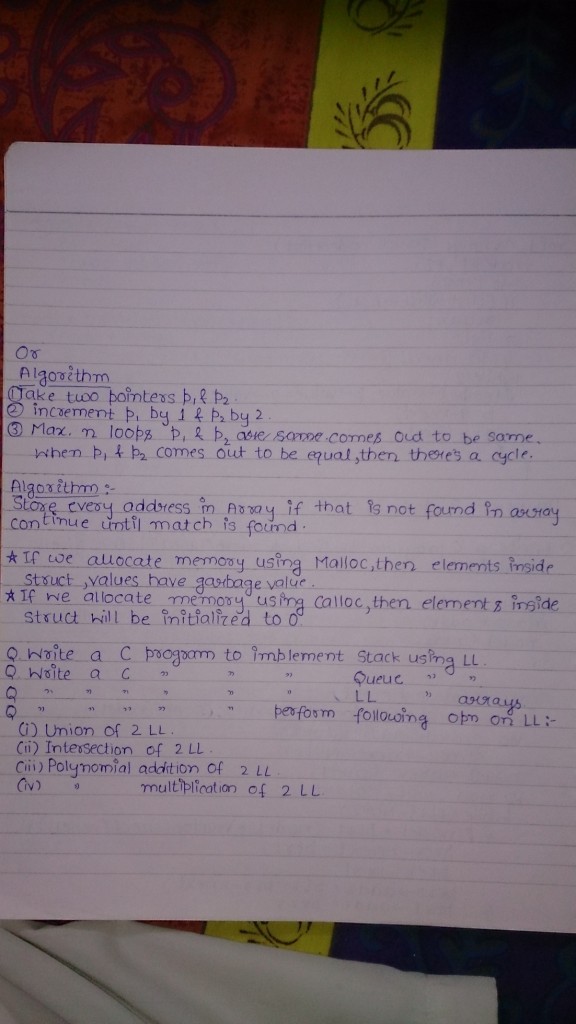 Or
Algorithm
① Take two pointers p₁ & p₂.
② increment p₁ by 1 & p₂ by 2.
③ Max. n loops p₁ & p₂ comes out to be same.
when p₁ & p₂ comes out to be equal, then there's a cycle.
Algorithm :-
Store every address in Array if that is not found in array
continue until match is found.
* If we allocate memory using Malloc, then elements inside
struct, values have garbage value.
* If we allocate memory using calloc, then elements inside
struct will be initialized to 0
Q Write a C program to implement Stack using LL.
Q Write a C " " " Queue " "
Q " " " " " LL " arrays.
Q " " " " " perform following opn on LL:-
(i) Union of 2 LL.
(ii) Intersection of 2 LL.
(iii) Polynomial addition of 2 LL
(iv) " multiplication of 2 LL